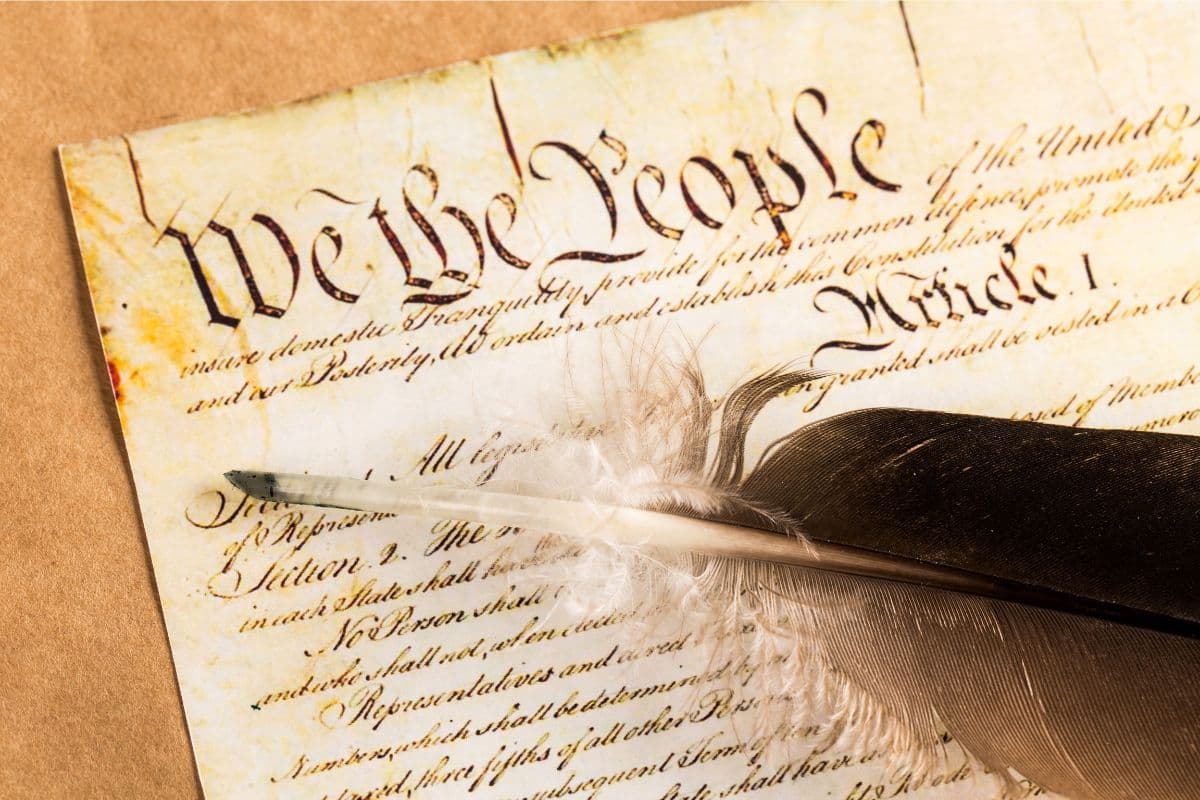 We the People of the United
insure domestic Tranquility, provide for the common defence, promote the
and our Posterity, do ordain and establish this Constitution for the United
Article. I.
granted shall be vested in a
All
of Represent
Section. 2. The
in each State shall
No Person shall
and who shall not, when elected
Representatives and direct
Numbers, which shall be determined by
three fifths of all other Persons
subsequent Term of ten
State shall have